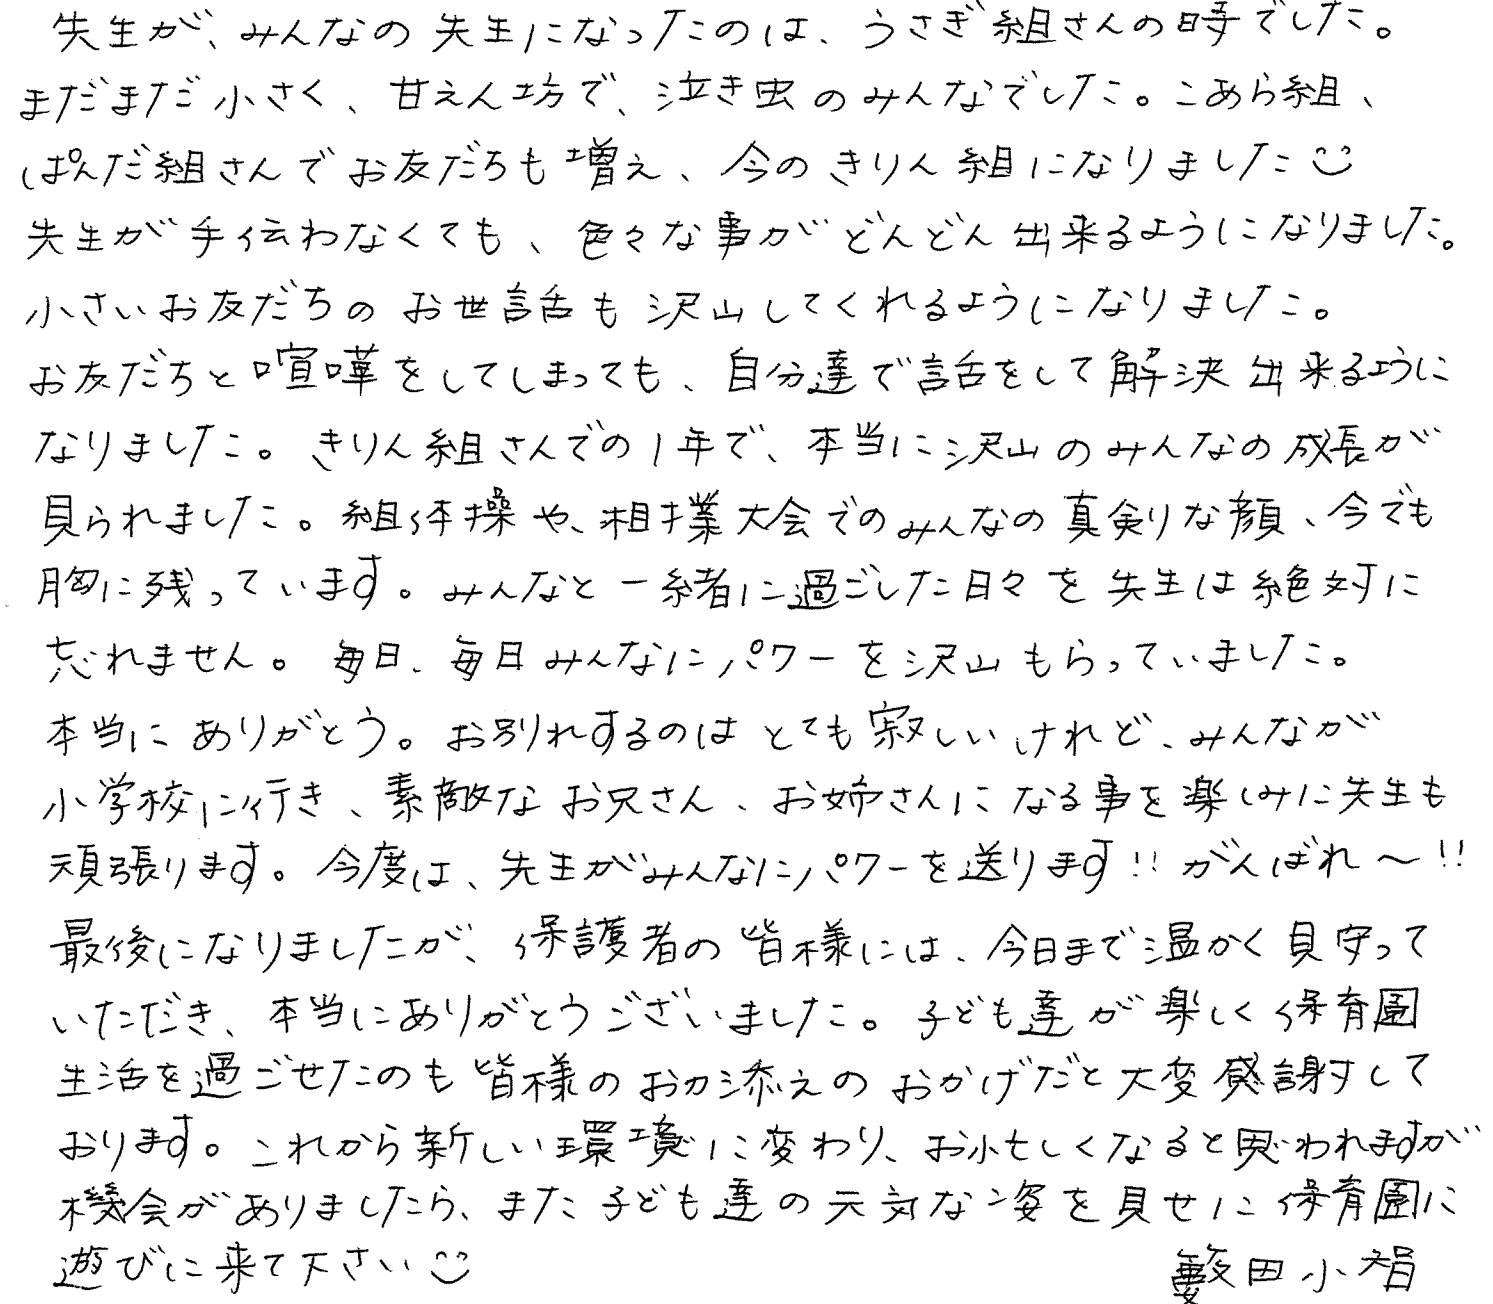 先生が、みんなの先生になったのは、うさぎ組さんの時でした。
まだまだ小さく、甘えん坊で、泣き虫のみんなでした。こあら組、
ぱんだ組さんでお友だちも増え、今のきりん組になりました
先生が手伝わなくても、色々な事がどんどん出来るようになりました。
小さいお友だちのお世話も沢山してくれるようになりました。
お友だちと喧嘩をしてしまっても、自分達で話をして解決出来るように
なりました。きりん組さんでの1年で、本当に沢山のみんなの成長が
見られました。組体操や、相撲大会でのみんなの真剣な顔、今でも
胸に残っています。みんなと一緒に過ごした日々を先生は絶対に
忘れません。毎日、毎日みんなにパワーを沢山もらっていました。
本当にありがとう。お別れするのはとても寂しいけれど、みんなが
小学校に行き、素敵なお兄さん、お姉さんになる事を楽しみに先生も
頑張ります。今度は、先生がみんなにパワーを送ります!! がんばれ〜!!
最後になりましたが、保護者の皆様には、今日まで温かく見守って
いただき、本当にありがとうございました。子ども達が楽しく保育園
生活を過ごせたのも皆様のお力添えのおかげだと大変感謝して
おります。これから新しい環境に変わり、お忙しくなると思われますが
機会がありましたら、また子ども達の元気な姿を見せに保育園に
遊びに来て下さい
藪田小絹